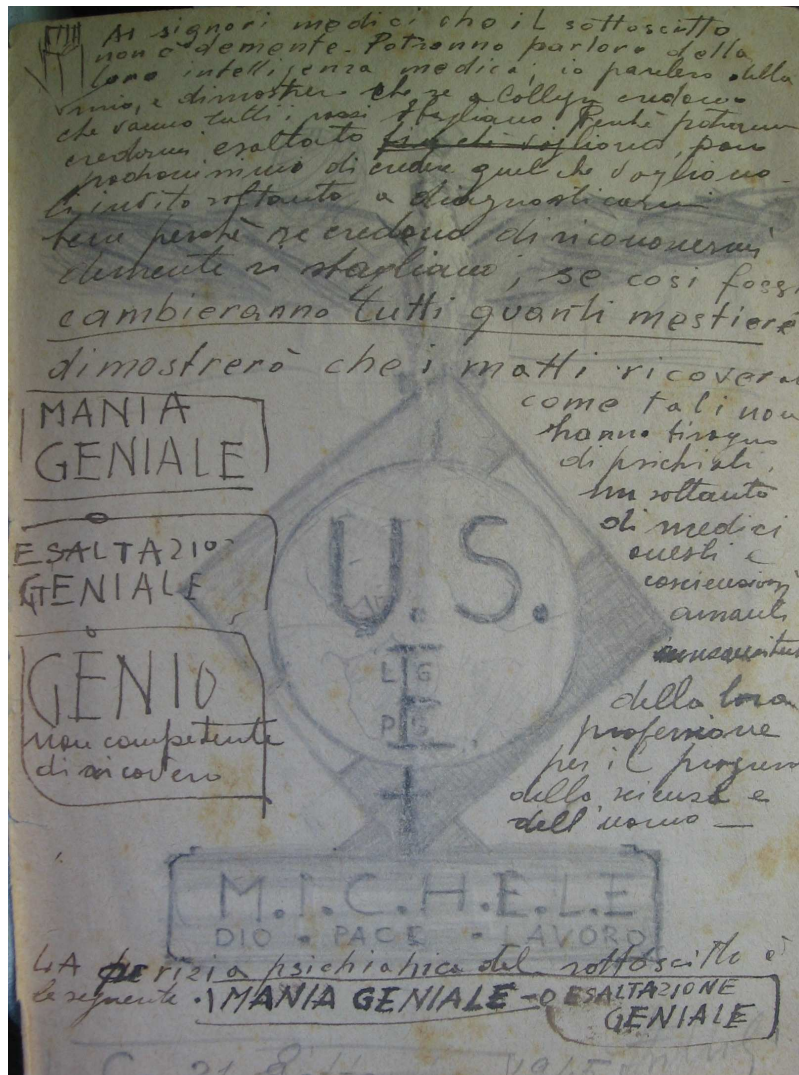 Ai signori medici che il sottoscritto
non è demente. Potranno parlare della
loro intelligenza medica; io parlerò della
mia, e dimostrerò che se a Collegno credono
che vanno tutti i pazzi sbagliano Perchè potranno
credermi esaltato fin che vogliono, però
di credere quel che vogliono
li invito soltanto a diagnosticarmi
bene perchè se credono di riconoscermi
demente si sbagliano; se così fosse
cambieranno tutti quanti mestiere
dimostrerò che i matti ricoverati
come tali non
hanno bisogno
di psichiatri,
ma soltanto
di medici
onesti e
coscienziosi
amanti
della loro
professione
per il progresso
della scienza e
dell'uomo —
MANIA
GENIALE
ESALTAZIONE
GENIALE
GENIO
non competente
di ricovero
U. S.
L G
P S
M.I.C.H.E.L.E
DIO • PACE • LAVORO
LA perizia psichiatrica del sottoscritto è
la seguente • MANIA GENIALE - O ESALTAZIONE
GENIALE